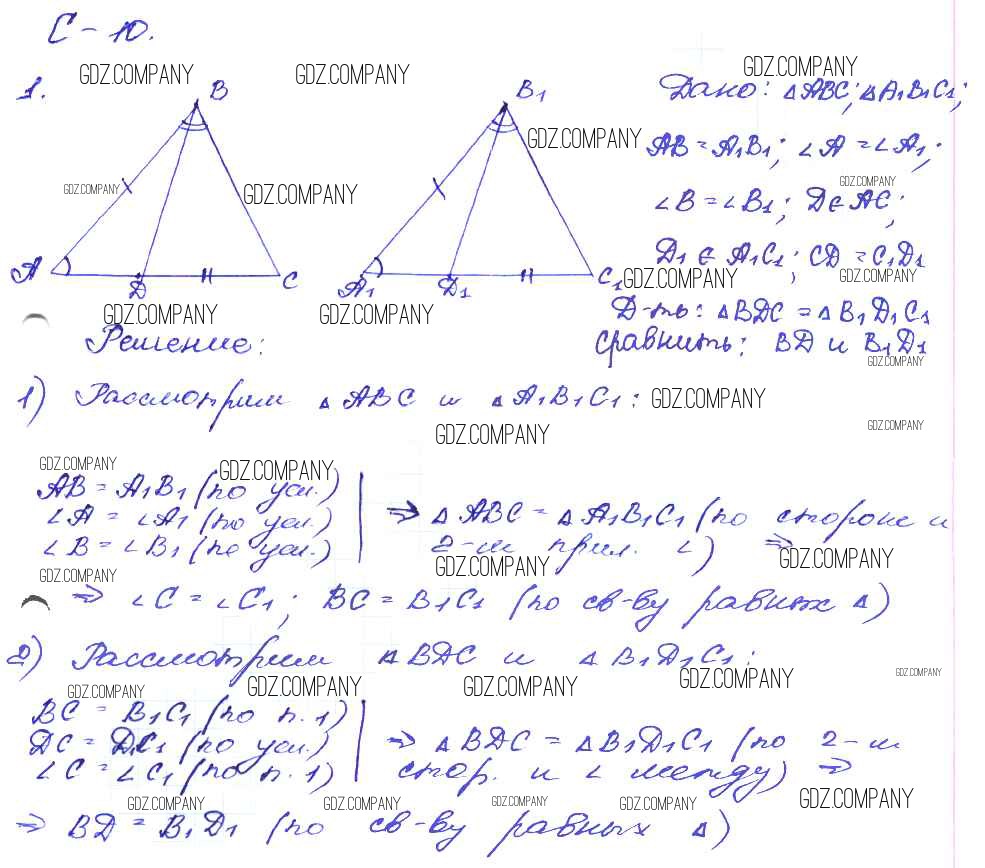 С-10.
GDZ.COMPANY GDZ.COMPANY GDZ.COMPANY
1. B B1 Дано: △ABC; △A1B1C1;
GDZ.COMPANY
AB = A1B1; ∠A = ∠A1;
GDZ.COMPANY GDZ.COMPANY GDZ.COMPANY
∠B = ∠B1; D ∈ AC;
D1 ∈ A1C1; CD = C1D1
A D C A1 D1 C1 GDZ.COMPANY GDZ.COMPANY
GDZ.COMPANY GDZ.COMPANY Д-ть: △BDC = △B1D1C1
Решение: Сравнить: BD и B1D1
GDZ.COMPANY
1) Рассмотрим △ABC и △A1B1C1: GDZ.COMPANY
GDZ.COMPANY GDZ.COMPANY
GDZ.COMPANY GDZ.COMPANY
AB = A1B1 (по усл.)
∠A = ∠A1 (по усл.) ⇒ △ABC = △A1B1C1 (по стороне и
∠B = ∠B1 (по усл.) 2-м прил. ∠) ⇒
GDZ.COMPANY GDZ.COMPANY GDZ.COMPANY
⇒ ∠C = ∠C1; BC = B1C1 (по св-ву равных △)
2) Рассмотрим △BDC и △B1D1C1:
GDZ.COMPANY GDZ.COMPANY GDZ.COMPANY GDZ.COMPANY GDZ.COMPANY
BC = B1C1 (по п. 1)
DC = D1C1 (по усл.) ⇒ △BDC = △B1D1C1 (по 2-м
∠C = ∠C1 (по п. 1) стор. и ∠ между) ⇒
GDZ.COMPANY GDZ.COMPANY GDZ.COMPANY GDZ.COMPANY GDZ.COMPANY
⇒ BD = B1D1 (по св-ву равных △)